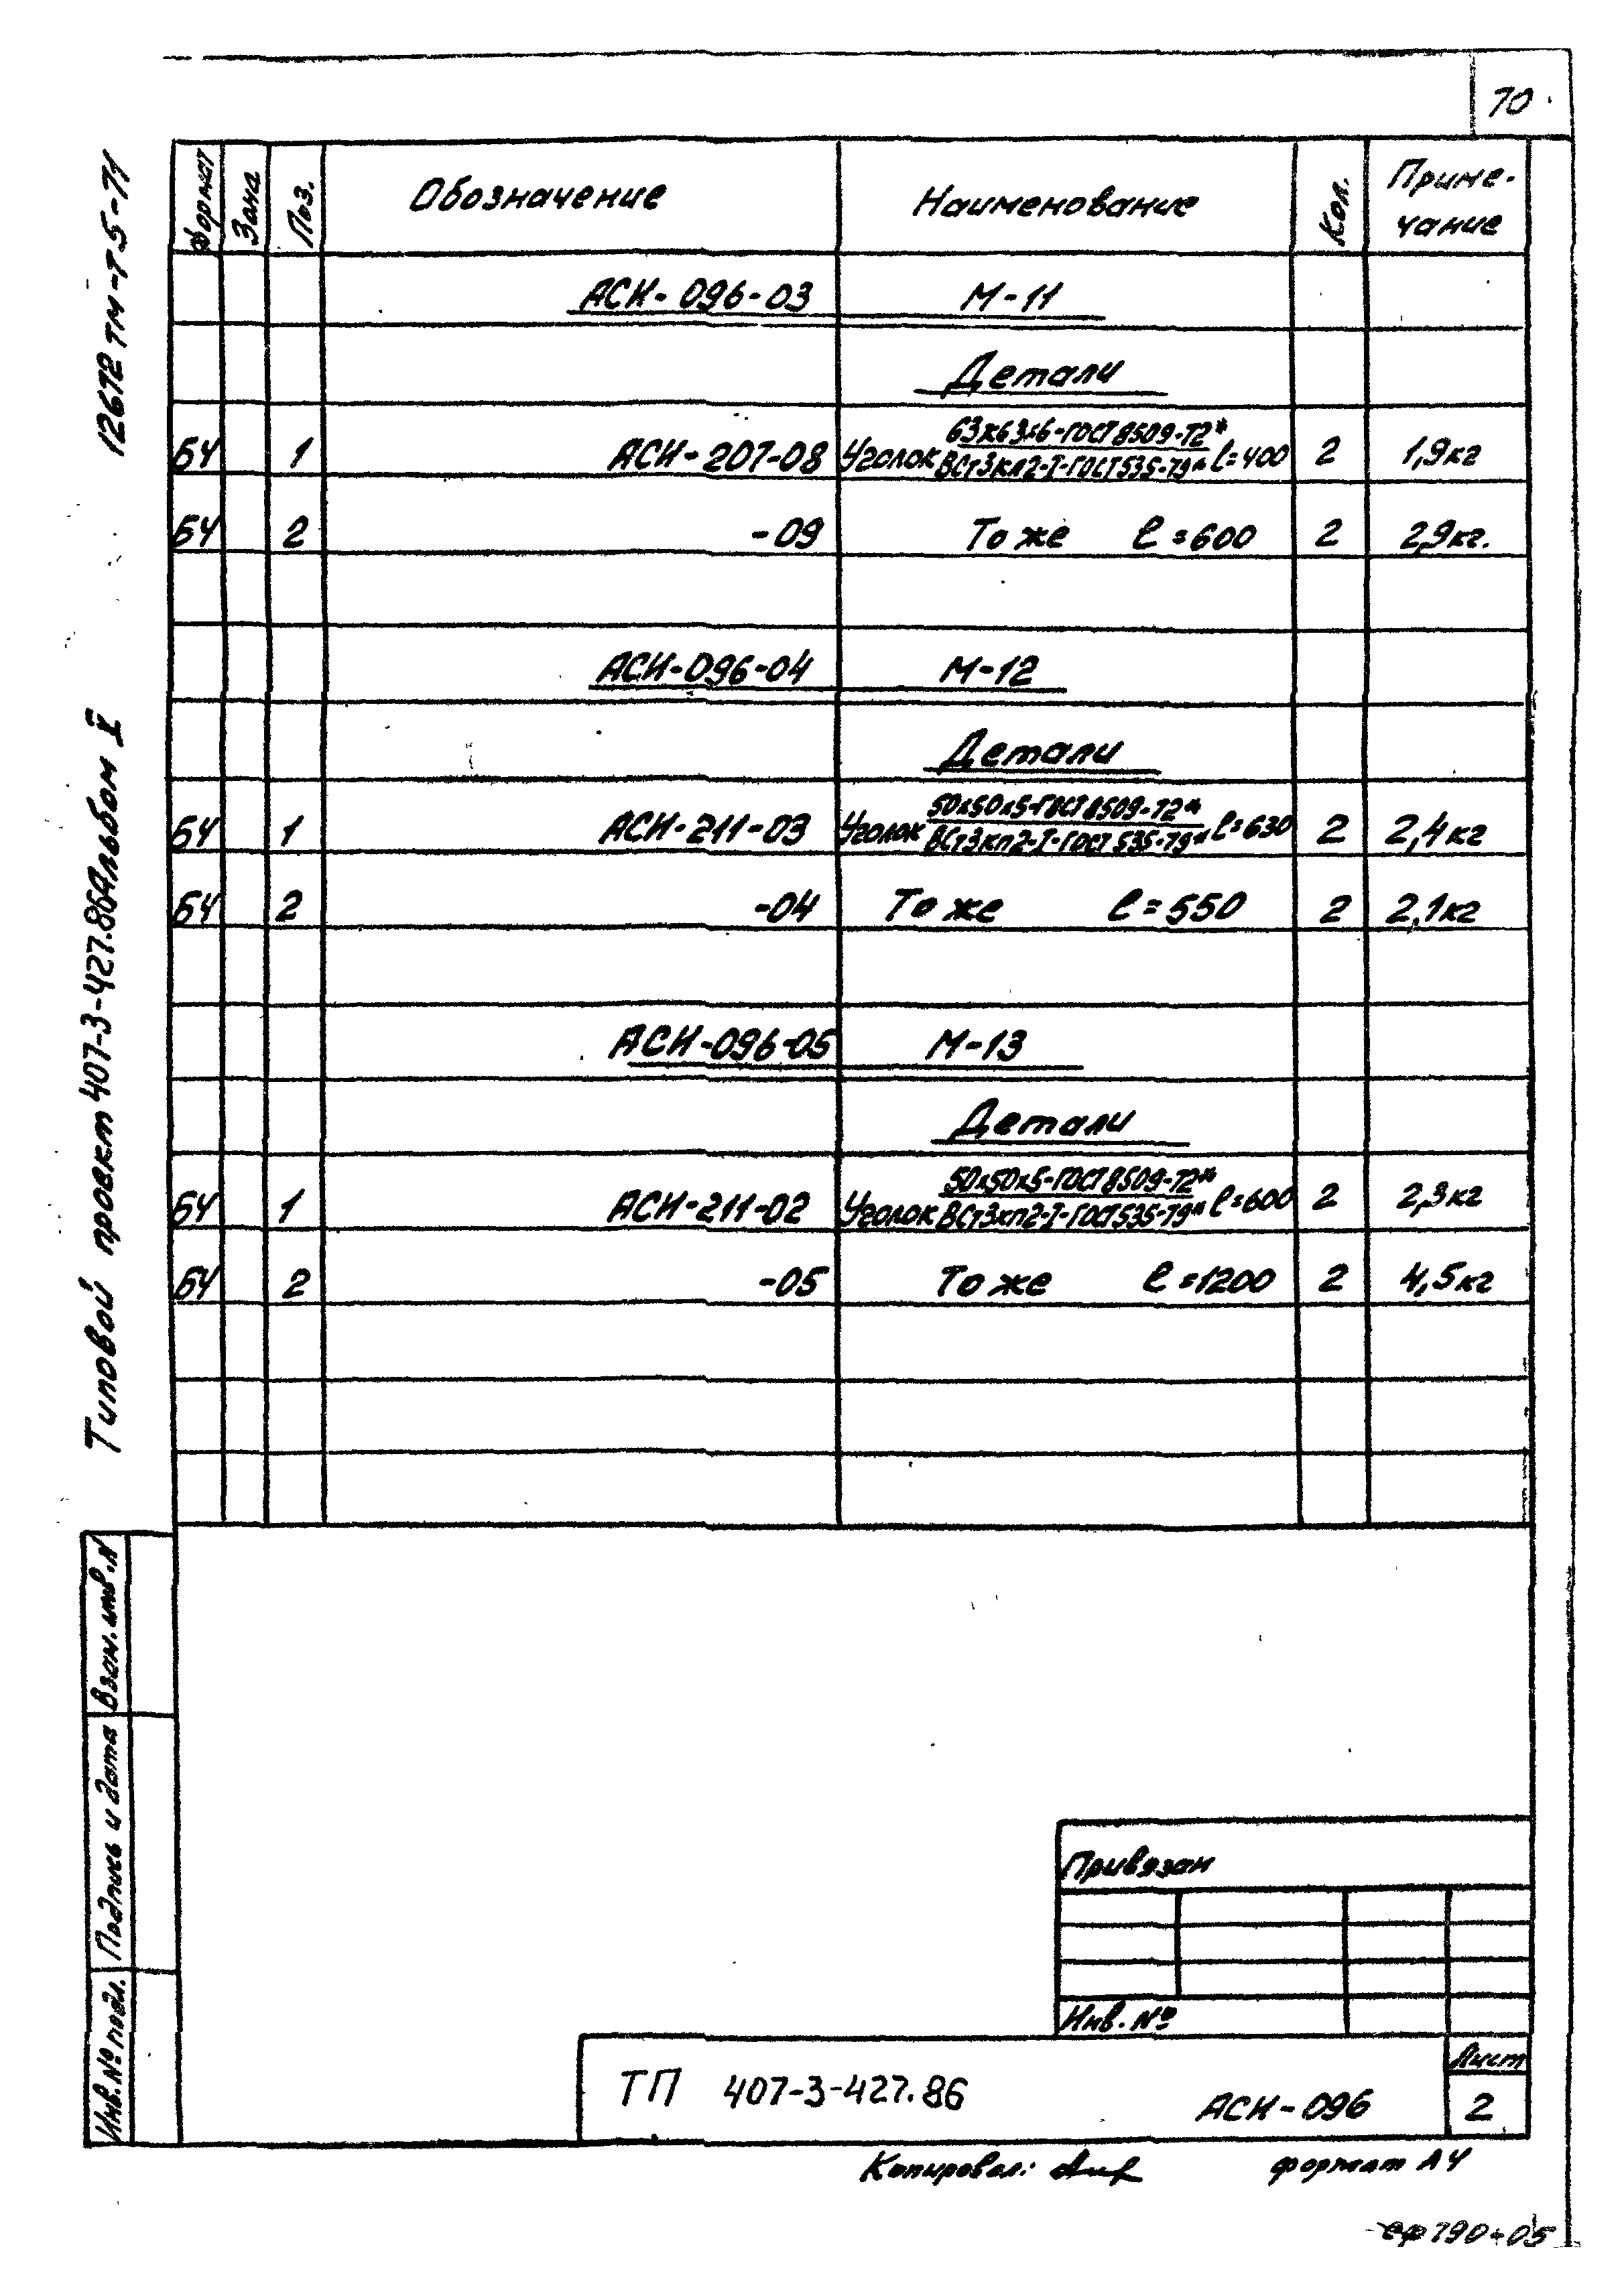 70
12672 тм-т5-71
Типовой проект 407-3-427.86 Альбом V
Формат Зона Поз. Обозначение Наименование Кол. Приме-
чание
АСИ-096-03 М-11
Детали
БЧ 1 АСИ-207-08 Уголок 63х63х6-ГОСТ 8509-72* / ВСт3кп2-I-ГОСТ 535-79* ℓ=400 2 1,9кг
БЧ 2 -09 То же ℓ=600 2 2,9кг.
АСИ-096-04 М-12
Детали
БЧ 1 АСИ-211-03 Уголок 50х50х5-ГОСТ 8509-72* / ВСт3кп2-I-ГОСТ 535-79* ℓ=630 2 2,4кг
БЧ 2 -04 То же ℓ=550 2 2,1кг
АСИ-096-05 М-13
Детали
БЧ 1 АСИ-211-02 Уголок 50х50х5-ГОСТ 8509-72* / ВСт3кп2-I-ГОСТ 535-79* ℓ=600 2 2,3кг
БЧ 2 -05 То же ℓ=1200 2 4,5кг
Взам. инв. N
Подпись и дата
Инв. № подл.
Привязан
Инв. №
ТП 407-3-427.86 АСИ-096
Лист
2
Копировал: формат А4
сф790-05